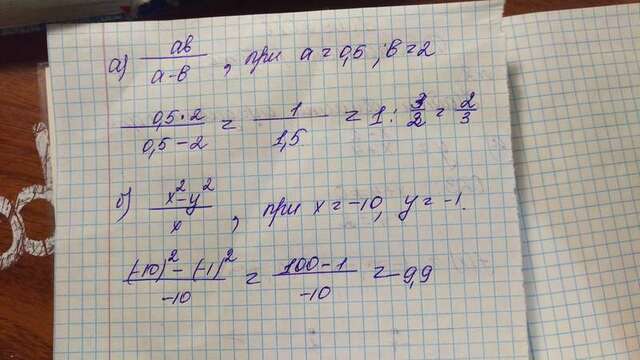 а) ab/(a-b), при a=0,5; b=2
(0,5·2)/(0,5-2) = 1/1,5 = 1 : 3/2 = 2/3
б) (x²-y²)/x, при x=-10, y=-1.
((-10)²-(-1)²)/(-10) = (100-1)/(-10) = -9,9